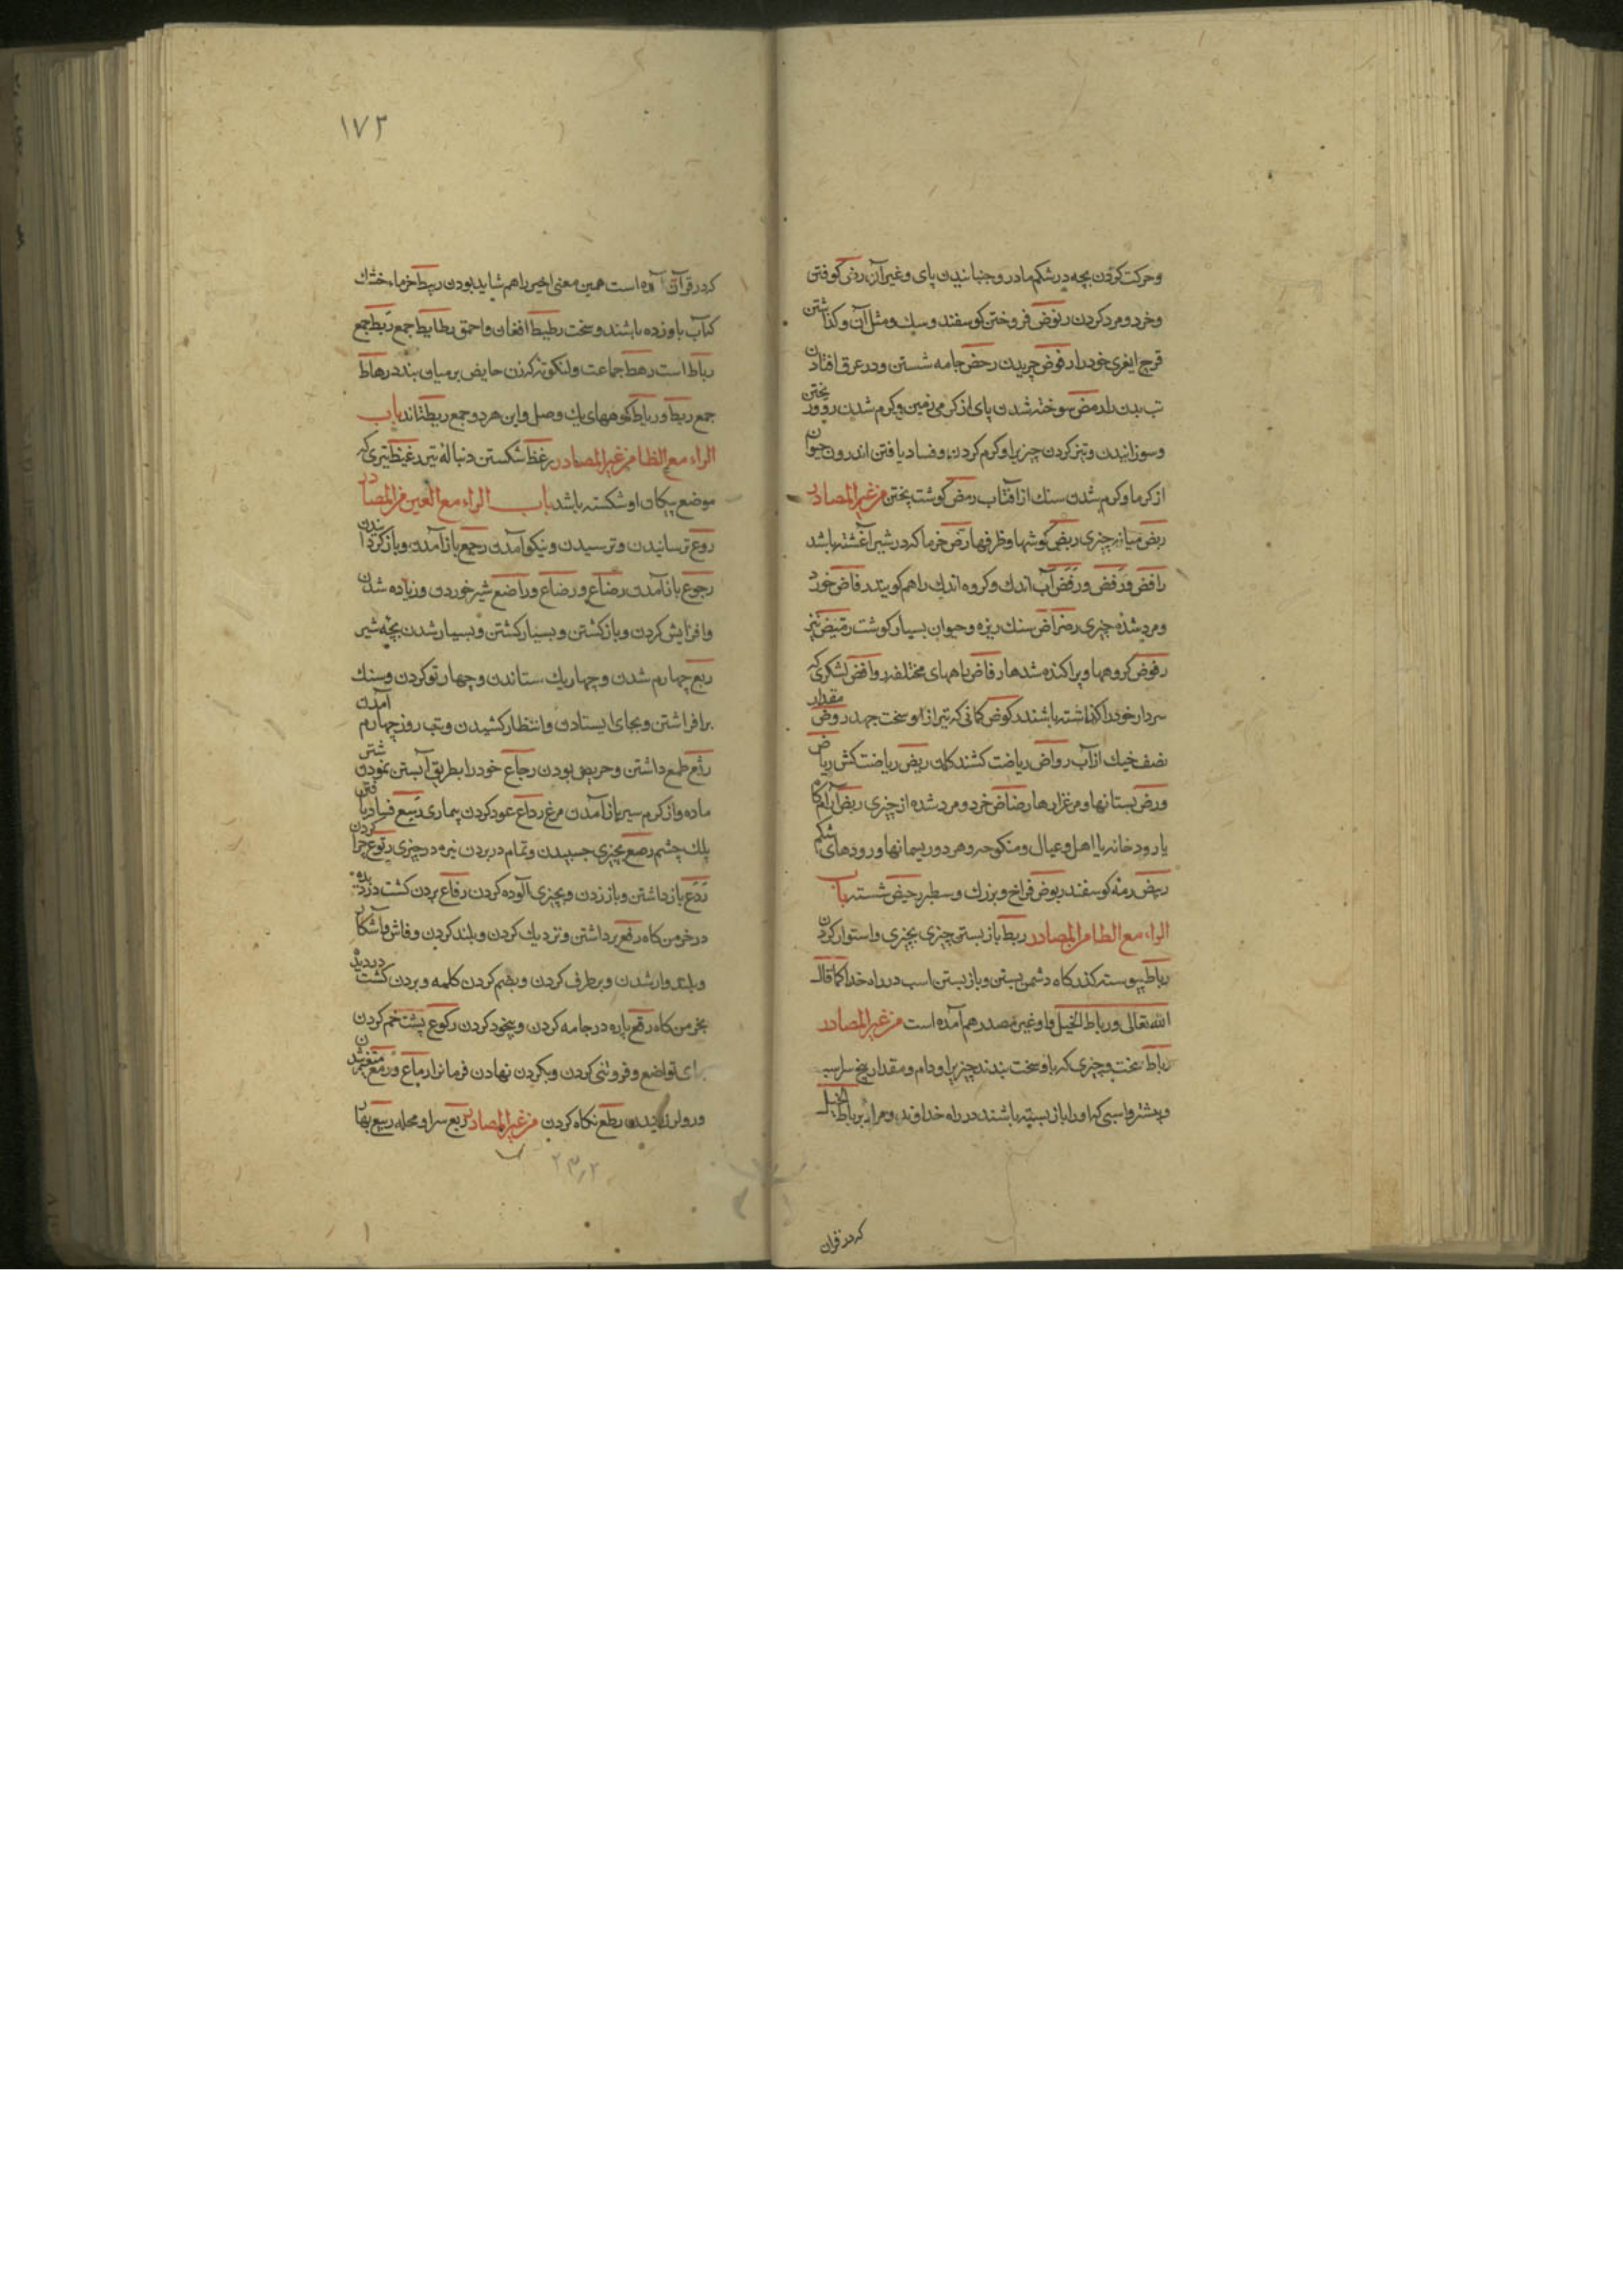 وحرکت کردن بچه در شکم مادر و جنبانیدن پای و غیر آن رض کوفتن
وخرد و مرد کردن ربوض فروختن کوسفند وسك ومثل آن وکذاشتن
خودرا رفوض چریدن رحض جامه شستن ودر عرق افتادن
سوخته شدن پای از کرمی زمین وکرم شدن روز
وسوزانیدن وتیز کردن چیزیرا وکرم کردن وفساد یافتن اندرون حیوان
از کرما وکرم شدن سنك از آفتاب رمض کوشت پختن من غیر المصادر
ربض میانه چیزی ربض کوشها وظرفها رض خرما که در شیر آغشته باشد
رافض ورفض ورفض آب اندك وکروه اندك را هم کویند رفاض خورد
ومرد شده چیزی رضراض سنك ریزه وحیوان بسیار کوشت رمیض تیز
رفوض کروهها وپراکنده شدها رفاض راههای مختلف روافض لشکری که
سردار خودرا کذاشته باشند رکوض کمانی که تیر ازو سخت جهد روض مقدار
نصف خیك از آب رواض ریاضت کشندکان ریض ریاضت کش ریاض
وروض بستانها ومرغزارها رضاض خرد ومرد شده از چیزی ربض آرامکاه
یا رود خانه یا اهل وعیال ومنکوحه وهر دو ریسمانها ورودهای شکم
ربیض رمه کوسفند ربوض فراخ وبزرك وسطبر رحیض شسته باب
الراء مع الطا من المصادر ربط باز بستن چیزی بچیزی واستوار کردن
رباط پیوسته کذرکاه دشمن بستن وباز بستن اسب در راه خدا کما قال
الله تعالی ورباط الخیل واو غیر مصدر هم آمده است من غیر المصادر
رباط سخت وچیزی که باو سخت بندند چیزیرا ودام ومقدار پنج سر اسب
وبیشتر واسبی که اورا باز بسته باشند در راه خدا ومراد بر رباط الخیل
که در قران
۱۷۲
که در قرآن آمده است همین معنی اخیر را هم شاید بودن ربیط خرماء خشك
که آب باو زده باشند وسخت رطیط افغان واحمق رطایط جمع ربط جمع
رباط است رهط جماعت ولنکوته که زن حایض بر میان بندد رهاط
جمع ربط ورباط کوههای یك وصل واین هر دو جمع ریطه‌اند باب
الراء مع الظا من غیر المصادر رعظ شکستن دنباله تیر رعیظ تیری که
موضع پیکان او شکسته باشد باب الراء مع العین من المصادر
روع ترسانیدن وترسیدن ونیکو آمدن رجع باز آمدن وباز کردانیدن
رجوع باز آمدن رضاع ورضاع وراضع شیر خوردن وزیاده شدن
وافزایش کردن وباز کشتن وبسیار کشتن وبسیار شدن بچه شیر
ربع چهارم شدن وچهار یك ستاندن وچهار تو کردن وسنك
برافراشتن وبجای ایستادن وانتظار کشیدن وتب روز چهارم آمدن
رثع طمع داشتن وحریص بودن رجاع خودرا بطریق آبستن نمودن
ماده واز کرم سیر باز آمدن مرغ رداع عود کردن بیماری رسع فساد یافتن
پلك چشم رصع بچیزی چسپیدن وتمام در بردن نیزه در چیزی رتوع چرا کردن
ردع باز داشتن وباز زدن وبچیزی آلوده کردن رفاع بردن کشت
در خرمن کاه رفع برداشتن ونزدیك کردن وبلند کردن وفاش وآشکار
وبلند وار شدن وبرطرف کردن وبضم کردن کلمه وبردن کشت درویده
بخرمن کاه رقع پاره در جامه کردن وبیخود کردن رکوع پشت خم کردن
برای تواضع وفروتنی کردن وبکردن نهادن فرمانرا رماع ورمع متغیر شدن
رطع نکاه کردن من غیر المصادر ربع سرا ومحله ربیع بهار